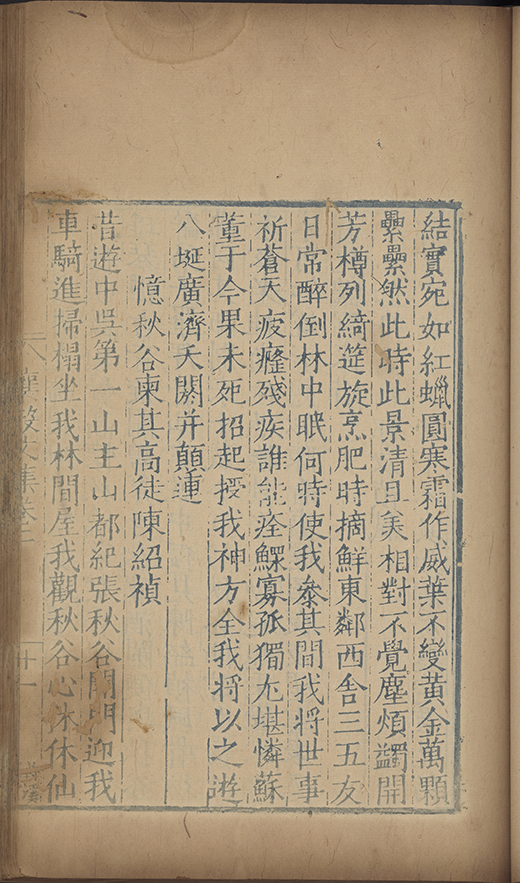 結實宛如紅蠟圓寒霜作威葉不變黃金萬顆
纍纍然此時此景清且美相對不覺塵煩蠲開
芳樽列綺筵旋烹肥時摘鮮東鄰西舍三五友
日常醉倒林中眠何時使我叅其間我將世事
祈蒼天疲癃殘疾誰能痊鰥寡孤獨尤堪憐蘇
董于今果未死招起授我神方全我將以之遊
八埏廣濟夭閼并顛連
憶秋谷柬其高徒陳紹禎
昔遊中吳第一山主山都紀張秋谷開門迎我
車騎進掃榻坐我林間屋我觀秋谷心休休仙
文集卷二
十一